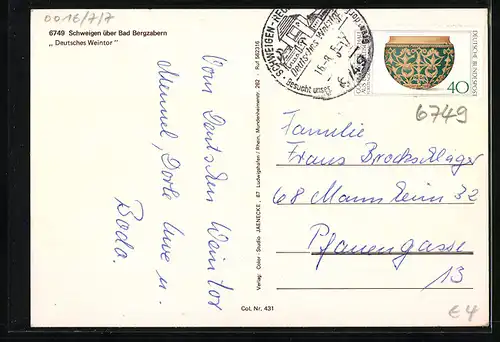 0016/7/7
6749 Schweigen über Bad Bergzabern
„Deutsches Weintor"
Vom Deutschen Weintor
Memmel, Dorle Uwe u.
Bodo.
Verlag Color-Studio JAENECKE, 67 Ludwigshafen/Rhein, Mundenheimerstr. 262 - Ruf 562316
Col. Nr. 431
SCHWEIGEN-REC
Deutsches Weintor
Besucht unser
6749
DEUTSCHE BUNDESPOST
40
6749
Familie
Frans Brockschläger
68 Mannheim 32
Pfauengasse
13
€4